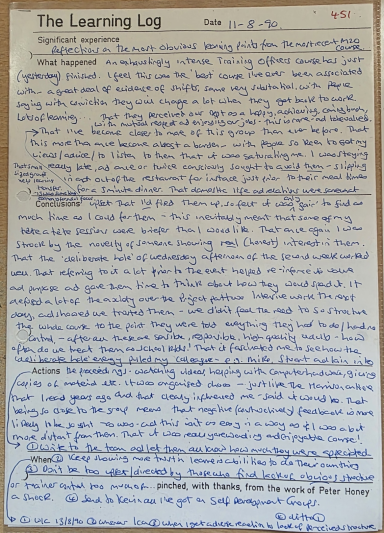 The Learning Log
Date 11-8-90.
451
Significant experience
Reflections on the most obvious learning points from the most recent M20
course.
What happened An exhaustingly intense Training Officers course has just
(yesterday) finished. I feel this was the 'best' course I've ever been associated
with - a great deal of evidence of shifts, some very substantial, with people
saying with conviction they will change a lot when they get back to work.
Lots of learning. That they perceived our dept as a happy, achieving, competent,
with mutual respect and enjoying our jobs - this is more and to be valued.
→ That I've become closer to more of this group than ever before. That
this more than once became almost a burden - with people so keen to get my
views/advice/to listen to them that it was saturating me. I was staying
really late, and once or twice consciously sought to avoid them - slipping
out of the restaurant for instance just prior to their meal times
for a 5 minute dinner. That domestic life and relations were
Conclusions upset that I'd fired them up, so felt it was only 'fair' to find as
much time as I could for them - this inevitably meant that some of my
tete a tete sessions were briefer than I would like. That once again I was
struck by the novelty of someone showing real (honest) interest in them.
That the 'deliberate hole' of Wednesday afternoon of the second week worked
well. That referring to it a lot prior to the event helped re-inforce its value
and purpose and gave them time to think about how they would spend it. It
helped a lot of the anxiety over the project putting Interview work the next
day, and showed we trusted them - we didn't feel the need to so structure
the whole course to the point they were told everything they had to do/had no
control - after all these are sensible, responsible, high quality adults - how
often do we treat them as such (kids)! That it fascinated me to see how the
deliberate hole energy pulled my colleagues - e.g. Mike, Stuart and Iain into
Actions the proceedings - watching videos, helping with computer hardware, giving
copies of material etc. It was organised chaos - just like the Harrison article
that I read years ago and that clearly influenced me - said it would be. That
being so close to the group means that negative (authoritively) feedback is more
likely to be sought so was - and this isn't as easy in a way as if I was a bit
more distant from them. That it was really rewarding and enjoyable course!
① Write to the team and let them all know how much they were appreciated
When ② Keep showing more trust in learners abilities to do their own thing
③ Don't be too upset/directed by those who find lack of obvious structure
or trainer control too much of
pinched, with thanks, from the work of Peter Honey
a shock. ④ Send to Kevin all I've got on Self Development Groups.
① w/c 13/8/90 ② whenever I can ③ when I get adverse reaction to lack of perceived structure
④ ditto ①